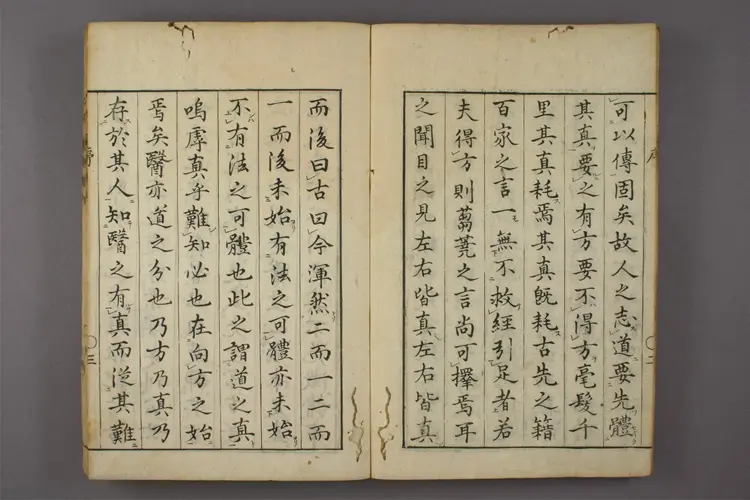 可以傳固矣故人之志道要先體
其真要之有方要不得方毫髮千
里其真耗焉其真既耗古先之籍
百家之言一無不救經引足者若
夫得方則蒭蕘之言尚可擇焉耳
之聞目之見左右皆真左右皆真
序
二
而後曰古曰今渾然二而一二而
一而後未始有法之可體亦未始
不有法之可體也此之謂道之真
嗚虖真乎難知必也在向方之始
焉矣醫亦道之分也乃方乃真乃
存於其人知醫之有真而從其難
序
三